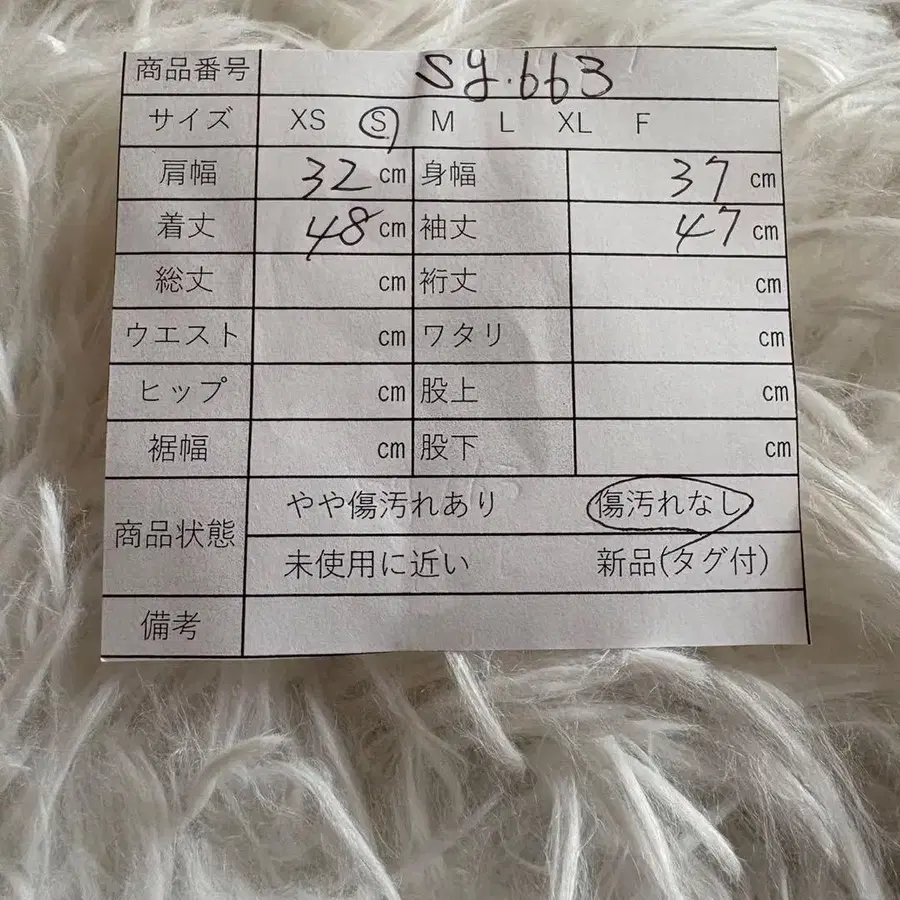 商品番号 sy.663
サイズ XS S M L XL F
肩幅 32 cm 身幅 37 cm
着丈 48 cm 袖丈 47 cm
総丈 cm 裄丈 cm
ウエスト cm ワタリ cm
ヒップ cm 股上 cm
裾幅 cm 股下 cm
商品状態 やや傷汚れあり 傷汚れなし
未使用に近い 新品(タグ付)
備考